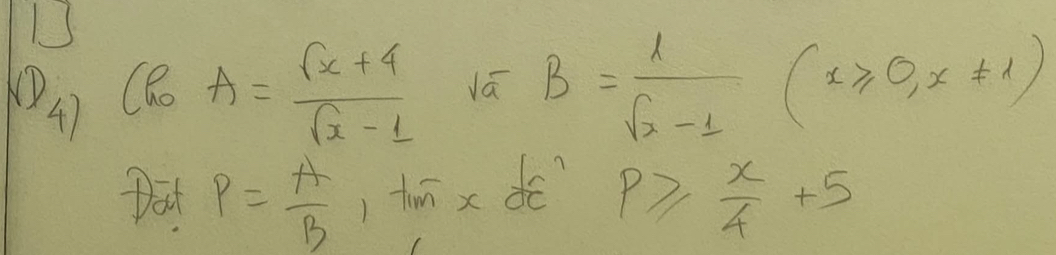 VD4) Cho A = \frac{\sqrt{x}+4}{\sqrt{x}-1} và B = \frac{1}{\sqrt{x}-1} (x ⩾ 0, x ≠ 1)
Đặt P = \frac{A}{B}, tìm x để P ⩾ \frac{x}{4} + 5